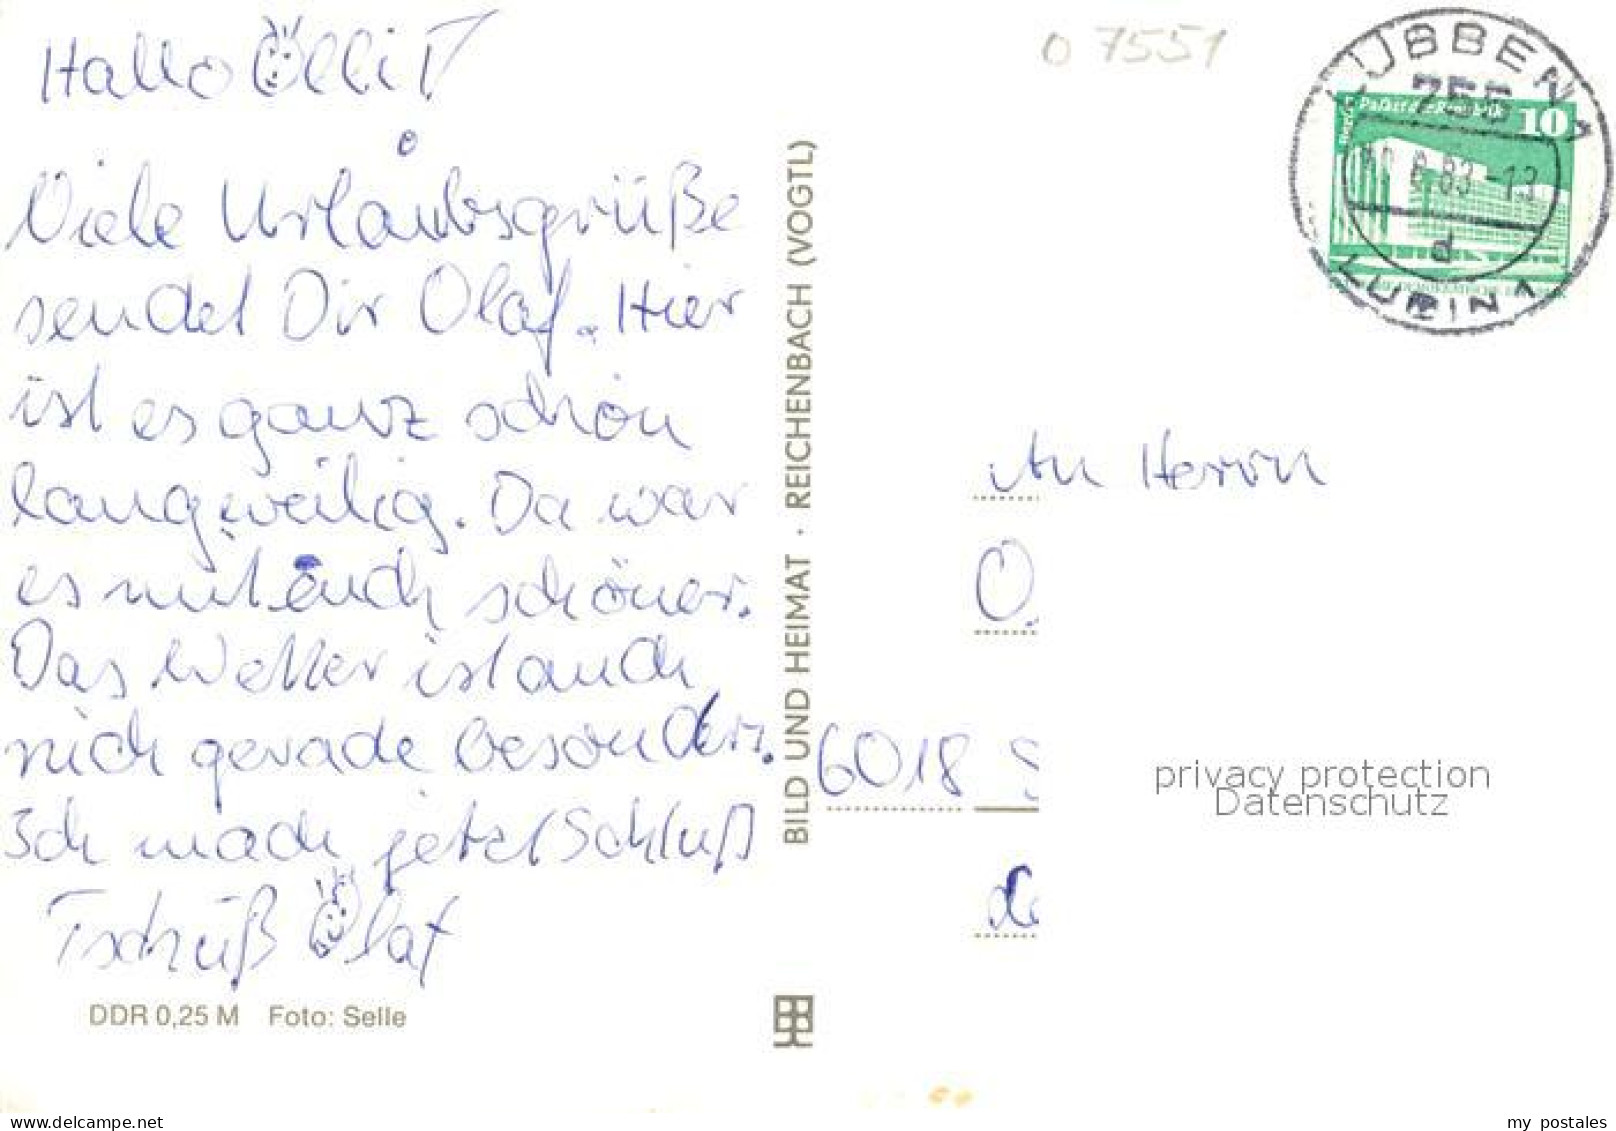 Hallo Ölli!
Viele Urlaubsgrüße
sendet Dir Olaf. Hier
ist es ganz schön
langweilig. Da war
es mit euch schöner.
Das Wetter ist auch
nich gerade besonders.
Ich mach jetzt Schluß
Tschüß Olaf
DDR 0,25 M Foto: Selle
BILD UND HEIMAT · REICHENBACH (VOGTL)
O 7551
LÜBBEN 1
755
83-13
d
LUBIN 1
Palast der Republik
10
An Herrn
O
6018 S
privacy protection
Datenschutz
www.delcampe.net
my_postales